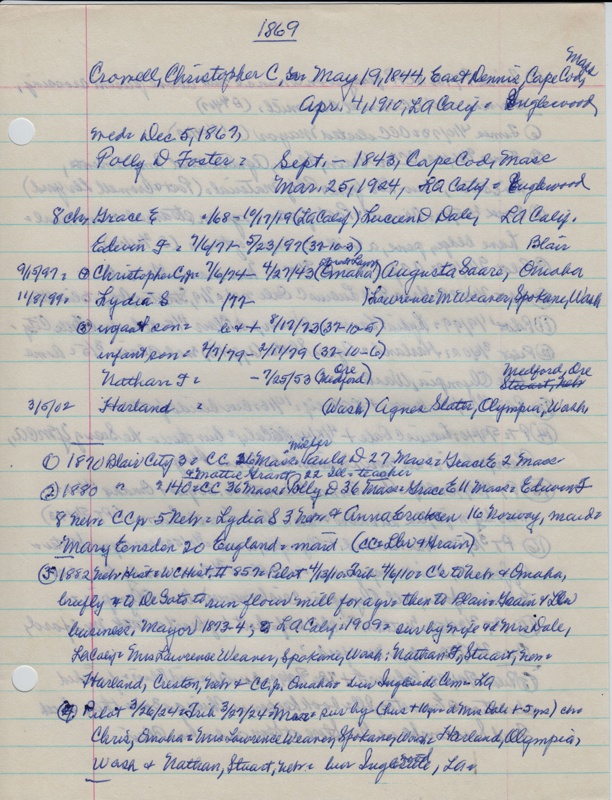 1869
Crowell, Christopher C, Sr = May 19, 1844, East Dennis, Cape Cod, Mass
Apr. 4, 1910, LA Calif = Inglewood
med = Dec 5, 1867,
Polly D Foster = Sept, - 1843, Cape Cod, Mass
Mar. 25, 1924, LA Calif = Inglewood
8 ch = Grace E = 168 - 10/17/19 (La Calif) Lucien D Dale, LA Calif.
Edwin F = 7/6/71 - 5/23/97 (32-10-3) Blair
9/15/97 = Christopher C, Jr = 7/6/74 - 4/27/43 (Omaha) Augusta Saare, Omaha
11/8/99 = Lydia S 177 ) Lawrence M Weaver, Spokane, Wash
③ infant son = b & + 8/12/73 (32-10-5)
infant son = 2/7/79 - 2/11/79 (32-10-6)
Nathan F = - 7/25/53 (Medford) Ore Medford, Ore Stuart, Nebr
3/5/02 Harland = (Wash) Agnes Slater, Olympia, Wash
① 1870 Blair City 3 = CC 26 Mass miller Paula D 27 Mass = Grace E 2 Mass
& Mattie Grant, 22 Ill = teacher
② 1880 " " 140 = CC 36 Mass = Polly D 36 Mass = Grace E 11 Mass = Edwin F
8 Nebr = CC jr 5 Nebr = Lydia S 3 Nebr & Anna 16 Norway, maid =
Mary Ensdon 20 England = maid (CC = Lbr & Grain)
③ 1882 Nebr Hist = WC Hist II 857 = Pilot 4/13/10 = Trib 4/6/10 = C's to Nebr & Omaha,
briefly & to DeSoto to run flour mill for a yr then to Blair = Grain & Lbr
business, Mayor 1873-4, to LA Calif = 1909 = sur by wife & d Mrs Dale,
LA Calif = Mrs Lawrence Weaver, Spokane, Wash; Nathan F, Stuart, Nebr =
Harland, Creston, Nebr & CC, jr, Omaha = bur Ingleside Cem = LA
④ Pilot 3/26/24 = Trib 3/27/24 = sur by (d Mrs Dale + ) ch =
Chris, Omaha = Mrs Lawrence Weaver, Spokane, Wash = Harland, Olympia,
Wash & Nathan, Stuart, Nebr = bur Ingleside, LA =